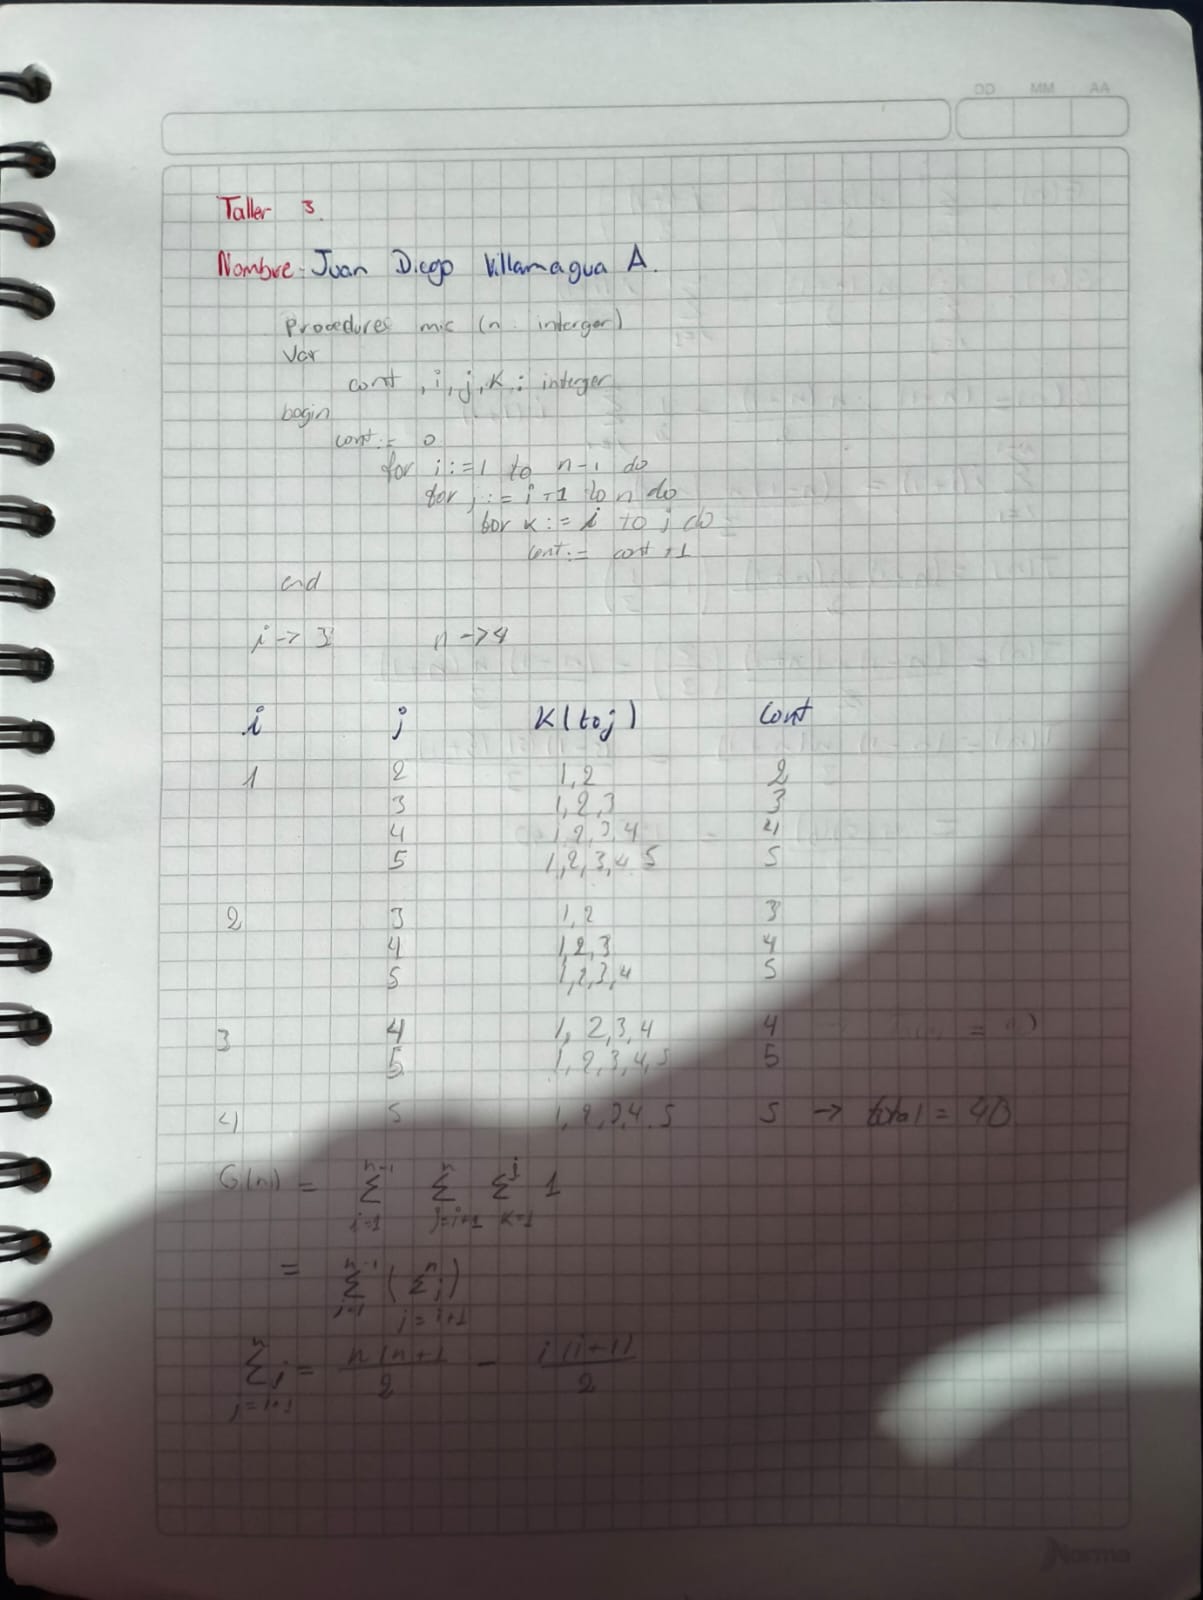 DD MM AA
Taller 3.
Nombre: Juan Diego Villamagua A.
Procedures mic (n: interger)
Var
cont, i, j, K: interger
begin
cont:= 0
for i:=1 to n-1 do
for j:= i+1 to n do
for K:= 1 to j do
cont:= cont +1
end
n ->4
i j K(to j) cont
1 2 1,2 2
3 1,2,3 3
4 1,2,3,4 4
5 1,2,3,4,5 5
2 3 1,2 3
4 1,2,3 4
5 1,2,3,4 5
3 4 1, 2,3,4 4
5 1,2,3,4,5 5
4 5 1,2,3,4,5 5 -> total = 40
G(n) = ∑_{i=1}^{n-1} ∑_{j=i+1}^{n} ∑_{K=1}^{j} 1
= ∑_{i=1}^{n-1} ( ∑_{j=i+1}^{n} j )
∑_{j=i+1}^{n} j = n(n+1 / 2 - i(i+1) / 2
Norma